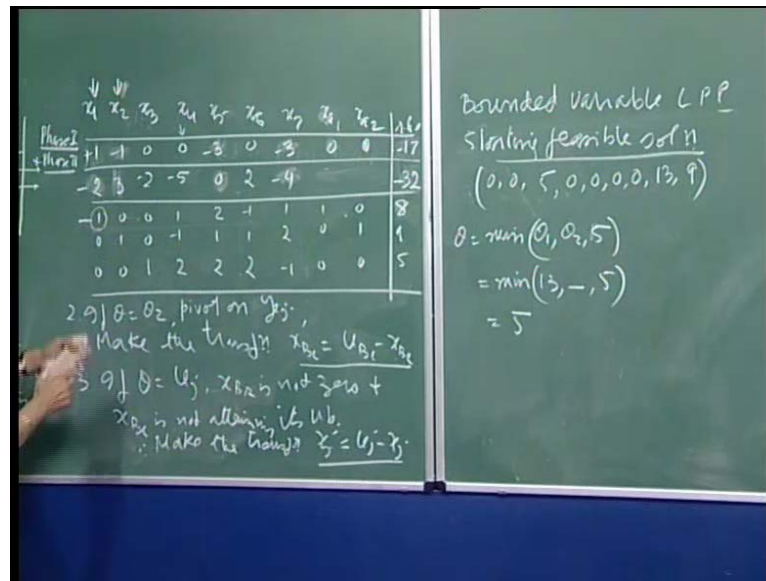 x1 x2 x3 x4 x5 x6 x7 xa1 xa2
Phase I +1 -1 0 0 -3 0 -3 0 0 -17
+ Phase II -2 3 -2 -5 0 2 -4 -32
-1 0 0 1 2 -1 1 1 0 8
0 1 0 -1 1 1 2 0 1
0 0 1 2 2 2 -1 0 0 5
2. If θ = θ2, pivot on
Make the x_Br = U_Br - x_Br
3 If θ = Uj, x_Br is not zero +
x_Br is not attaining its ub.
∴ Make the xj = Uj - xj
Bounded variable LPP
Starting feasible soln
(0, 0, 5, 0, 0, 0, 0, 13, 9)
θ = min(θ1, θ2, 5)
= min(13, -, 5)
= 5